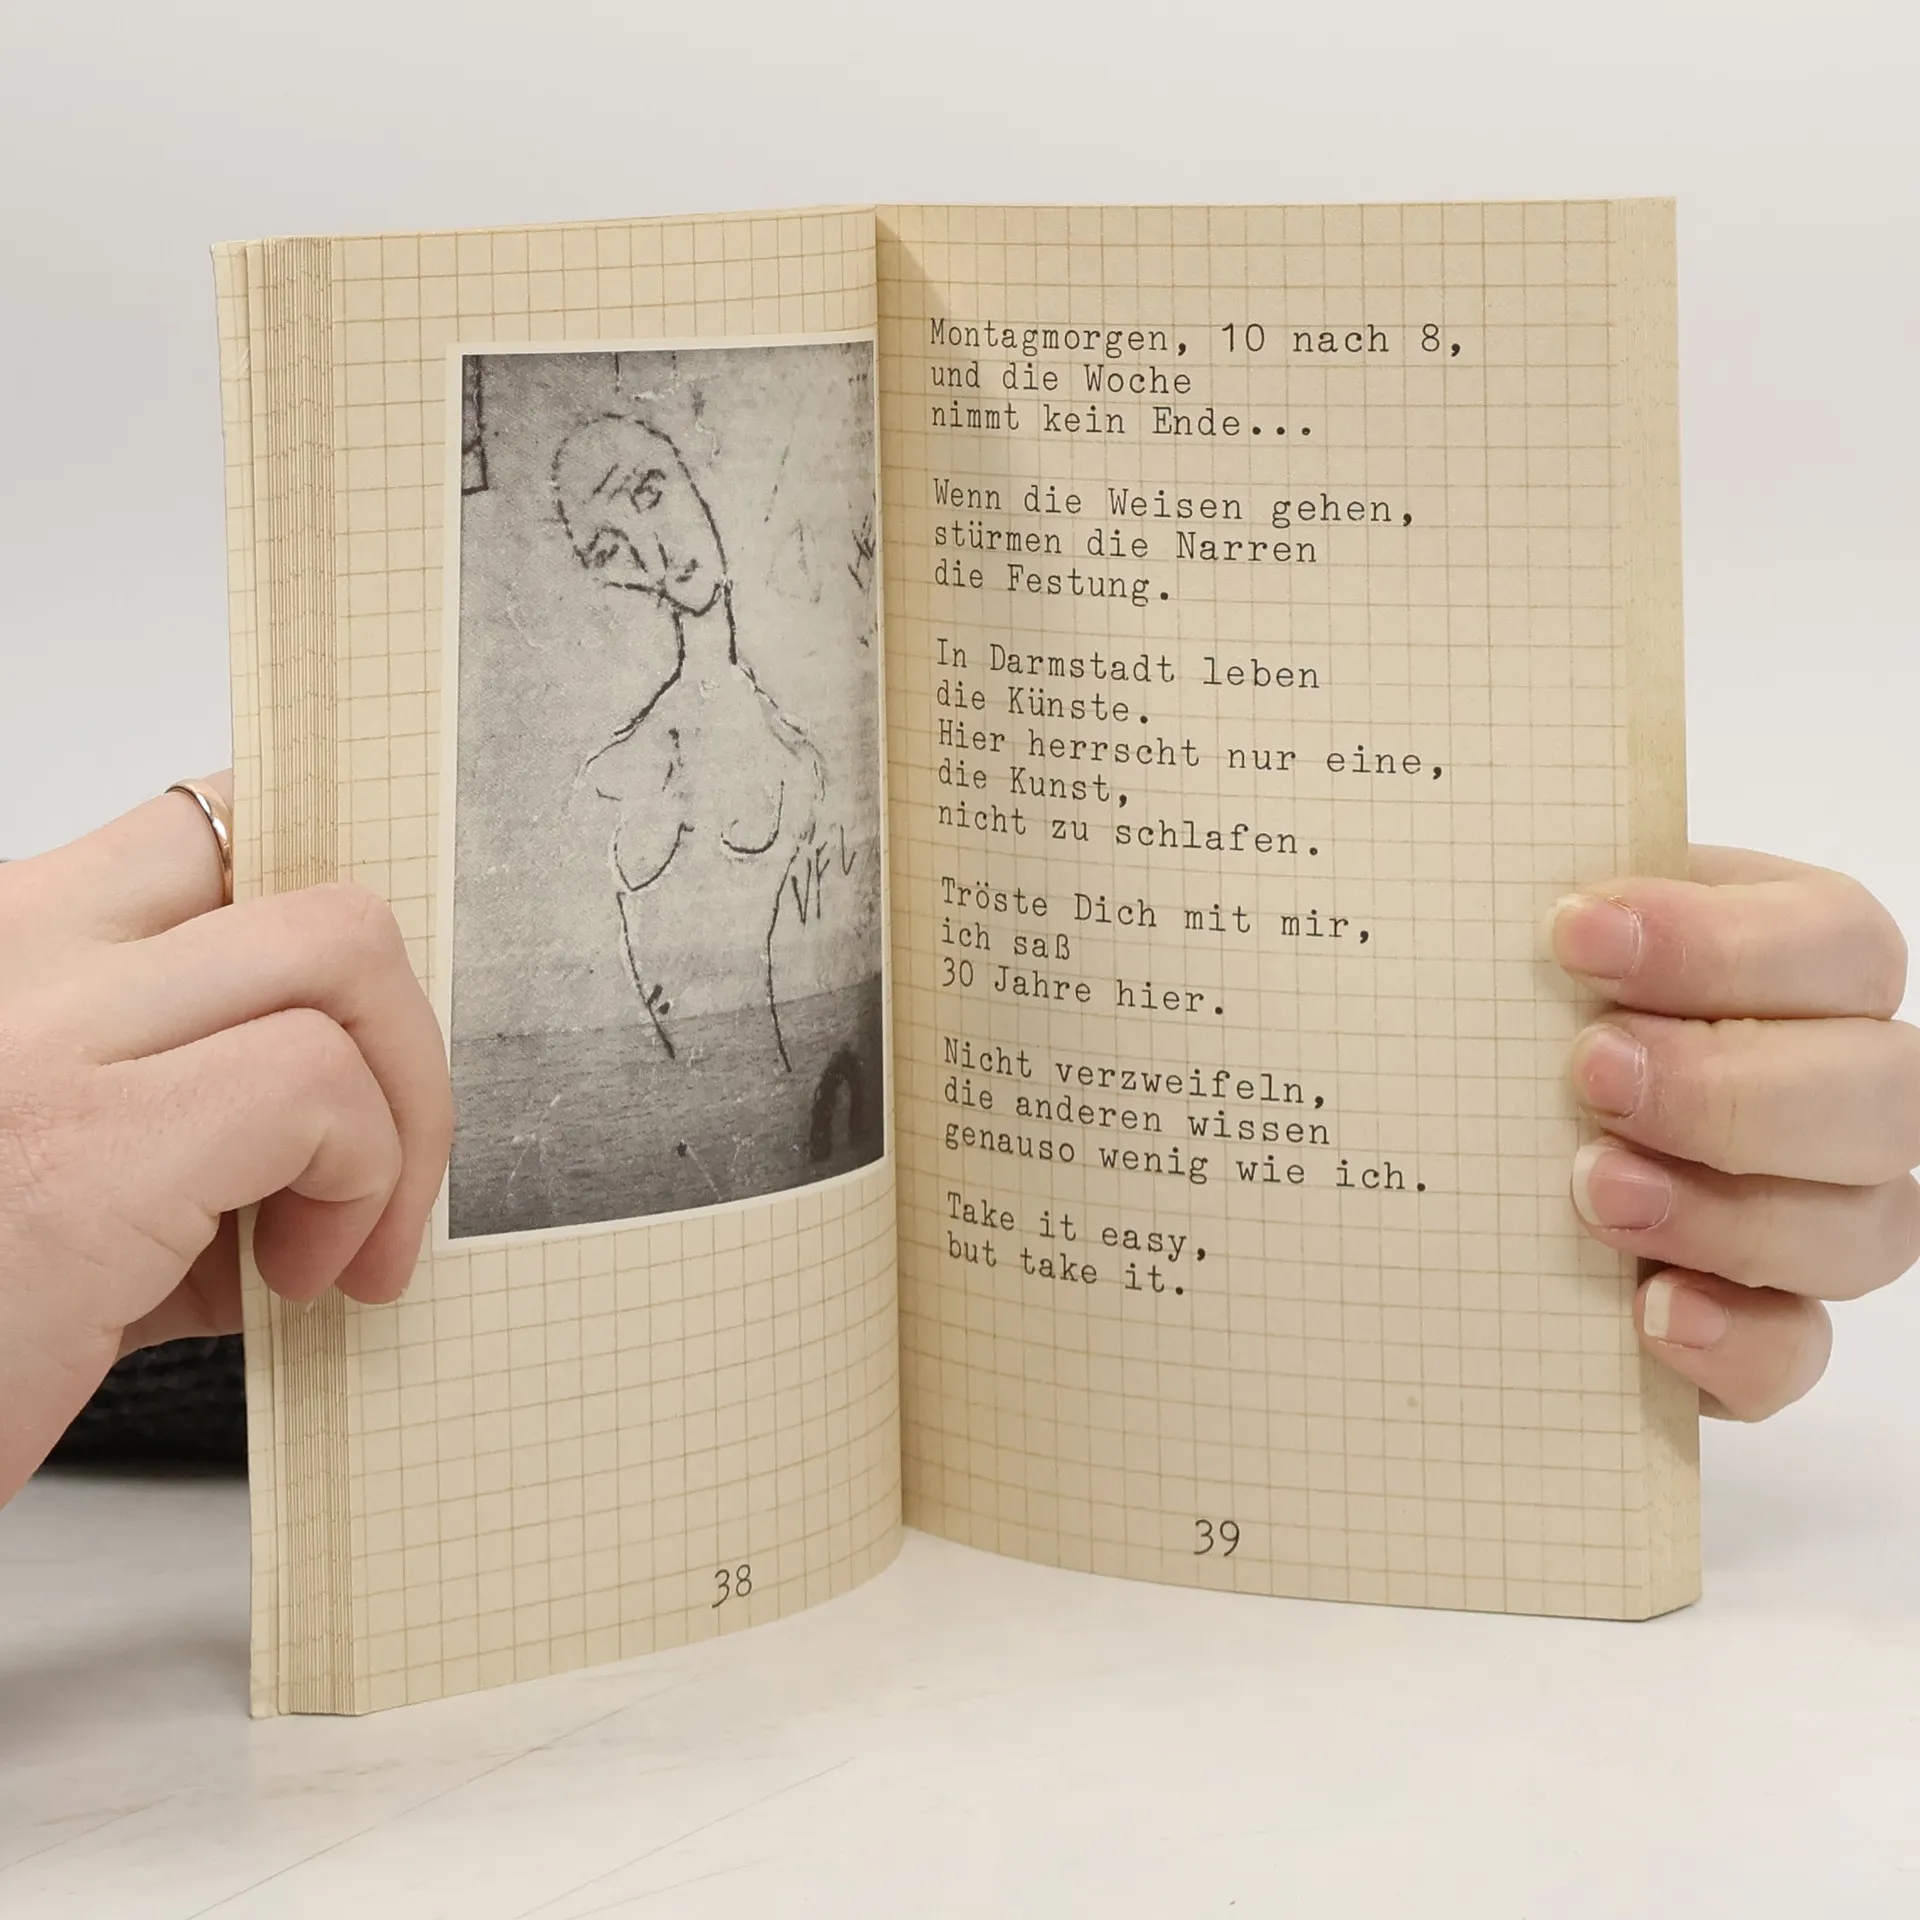 VFL
38
Montagmorgen, 10 nach 8,
und die Woche
nimmt kein Ende...
Wenn die Weisen gehen,
stürmen die Narren
die Festung.
In Darmstadt leben
die Künste.
Hier herrscht nur eine,
die Kunst,
nicht zu schlafen.
Tröste Dich mit mir,
ich saß
30 Jahre hier.
Nicht verzweifeln,
die anderen wissen
genauso wenig wie ich.
Take it easy,
but take it.
39